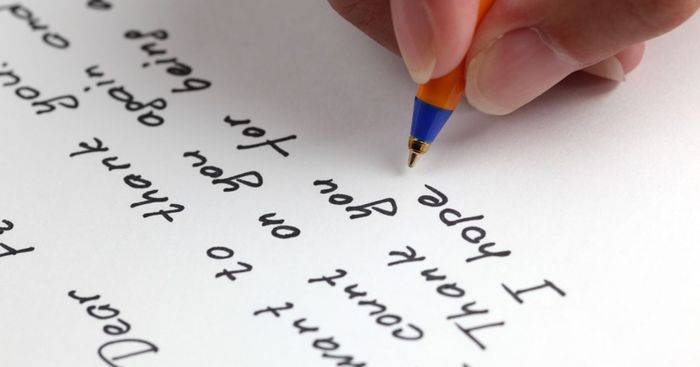 Dear
want to thank you.
count on you again and
Thank you for being a
I hope